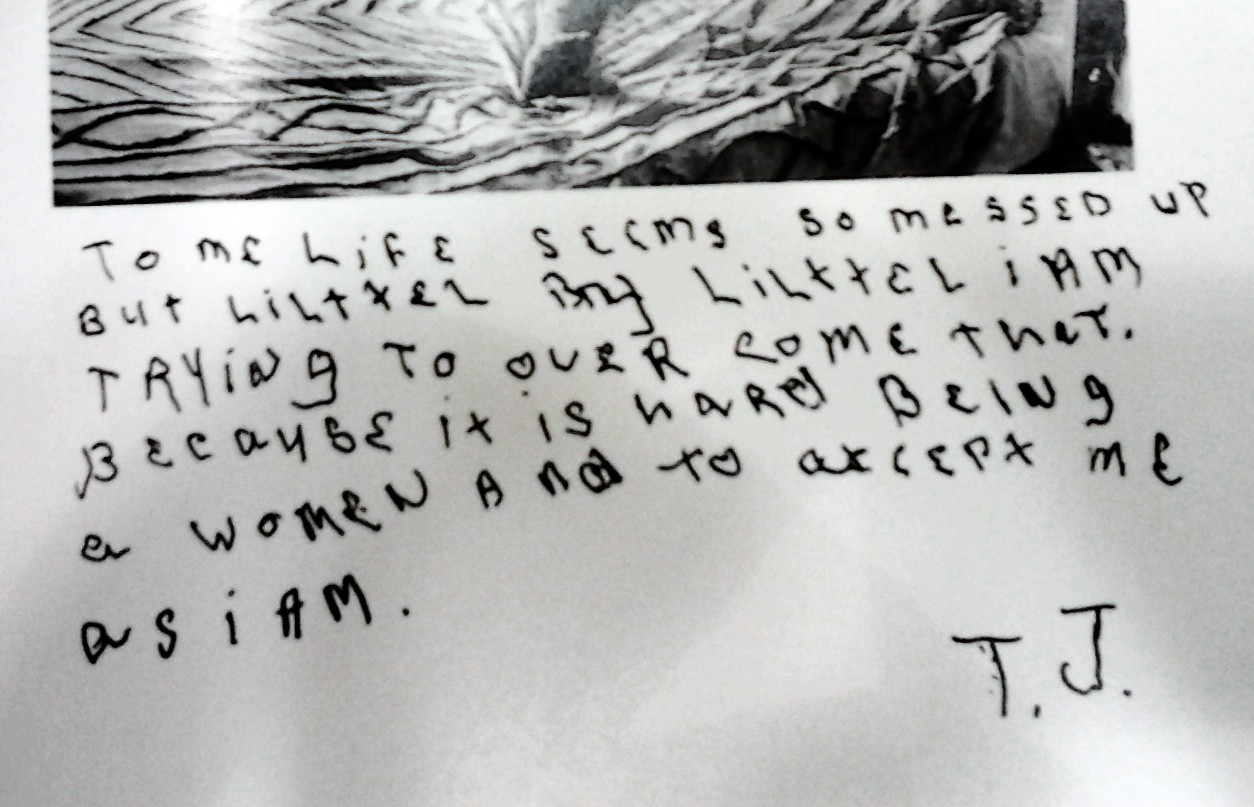 TO ME LiFE SEEMS SO MESSED UP
BUt LiLttEL By LiLttEL i AM
TRYiNg TO OVER COME that.
BECauSE it iS haRd BEINg
a WOMEN ANd to axCEPt ME
aS i AM.
T.J.